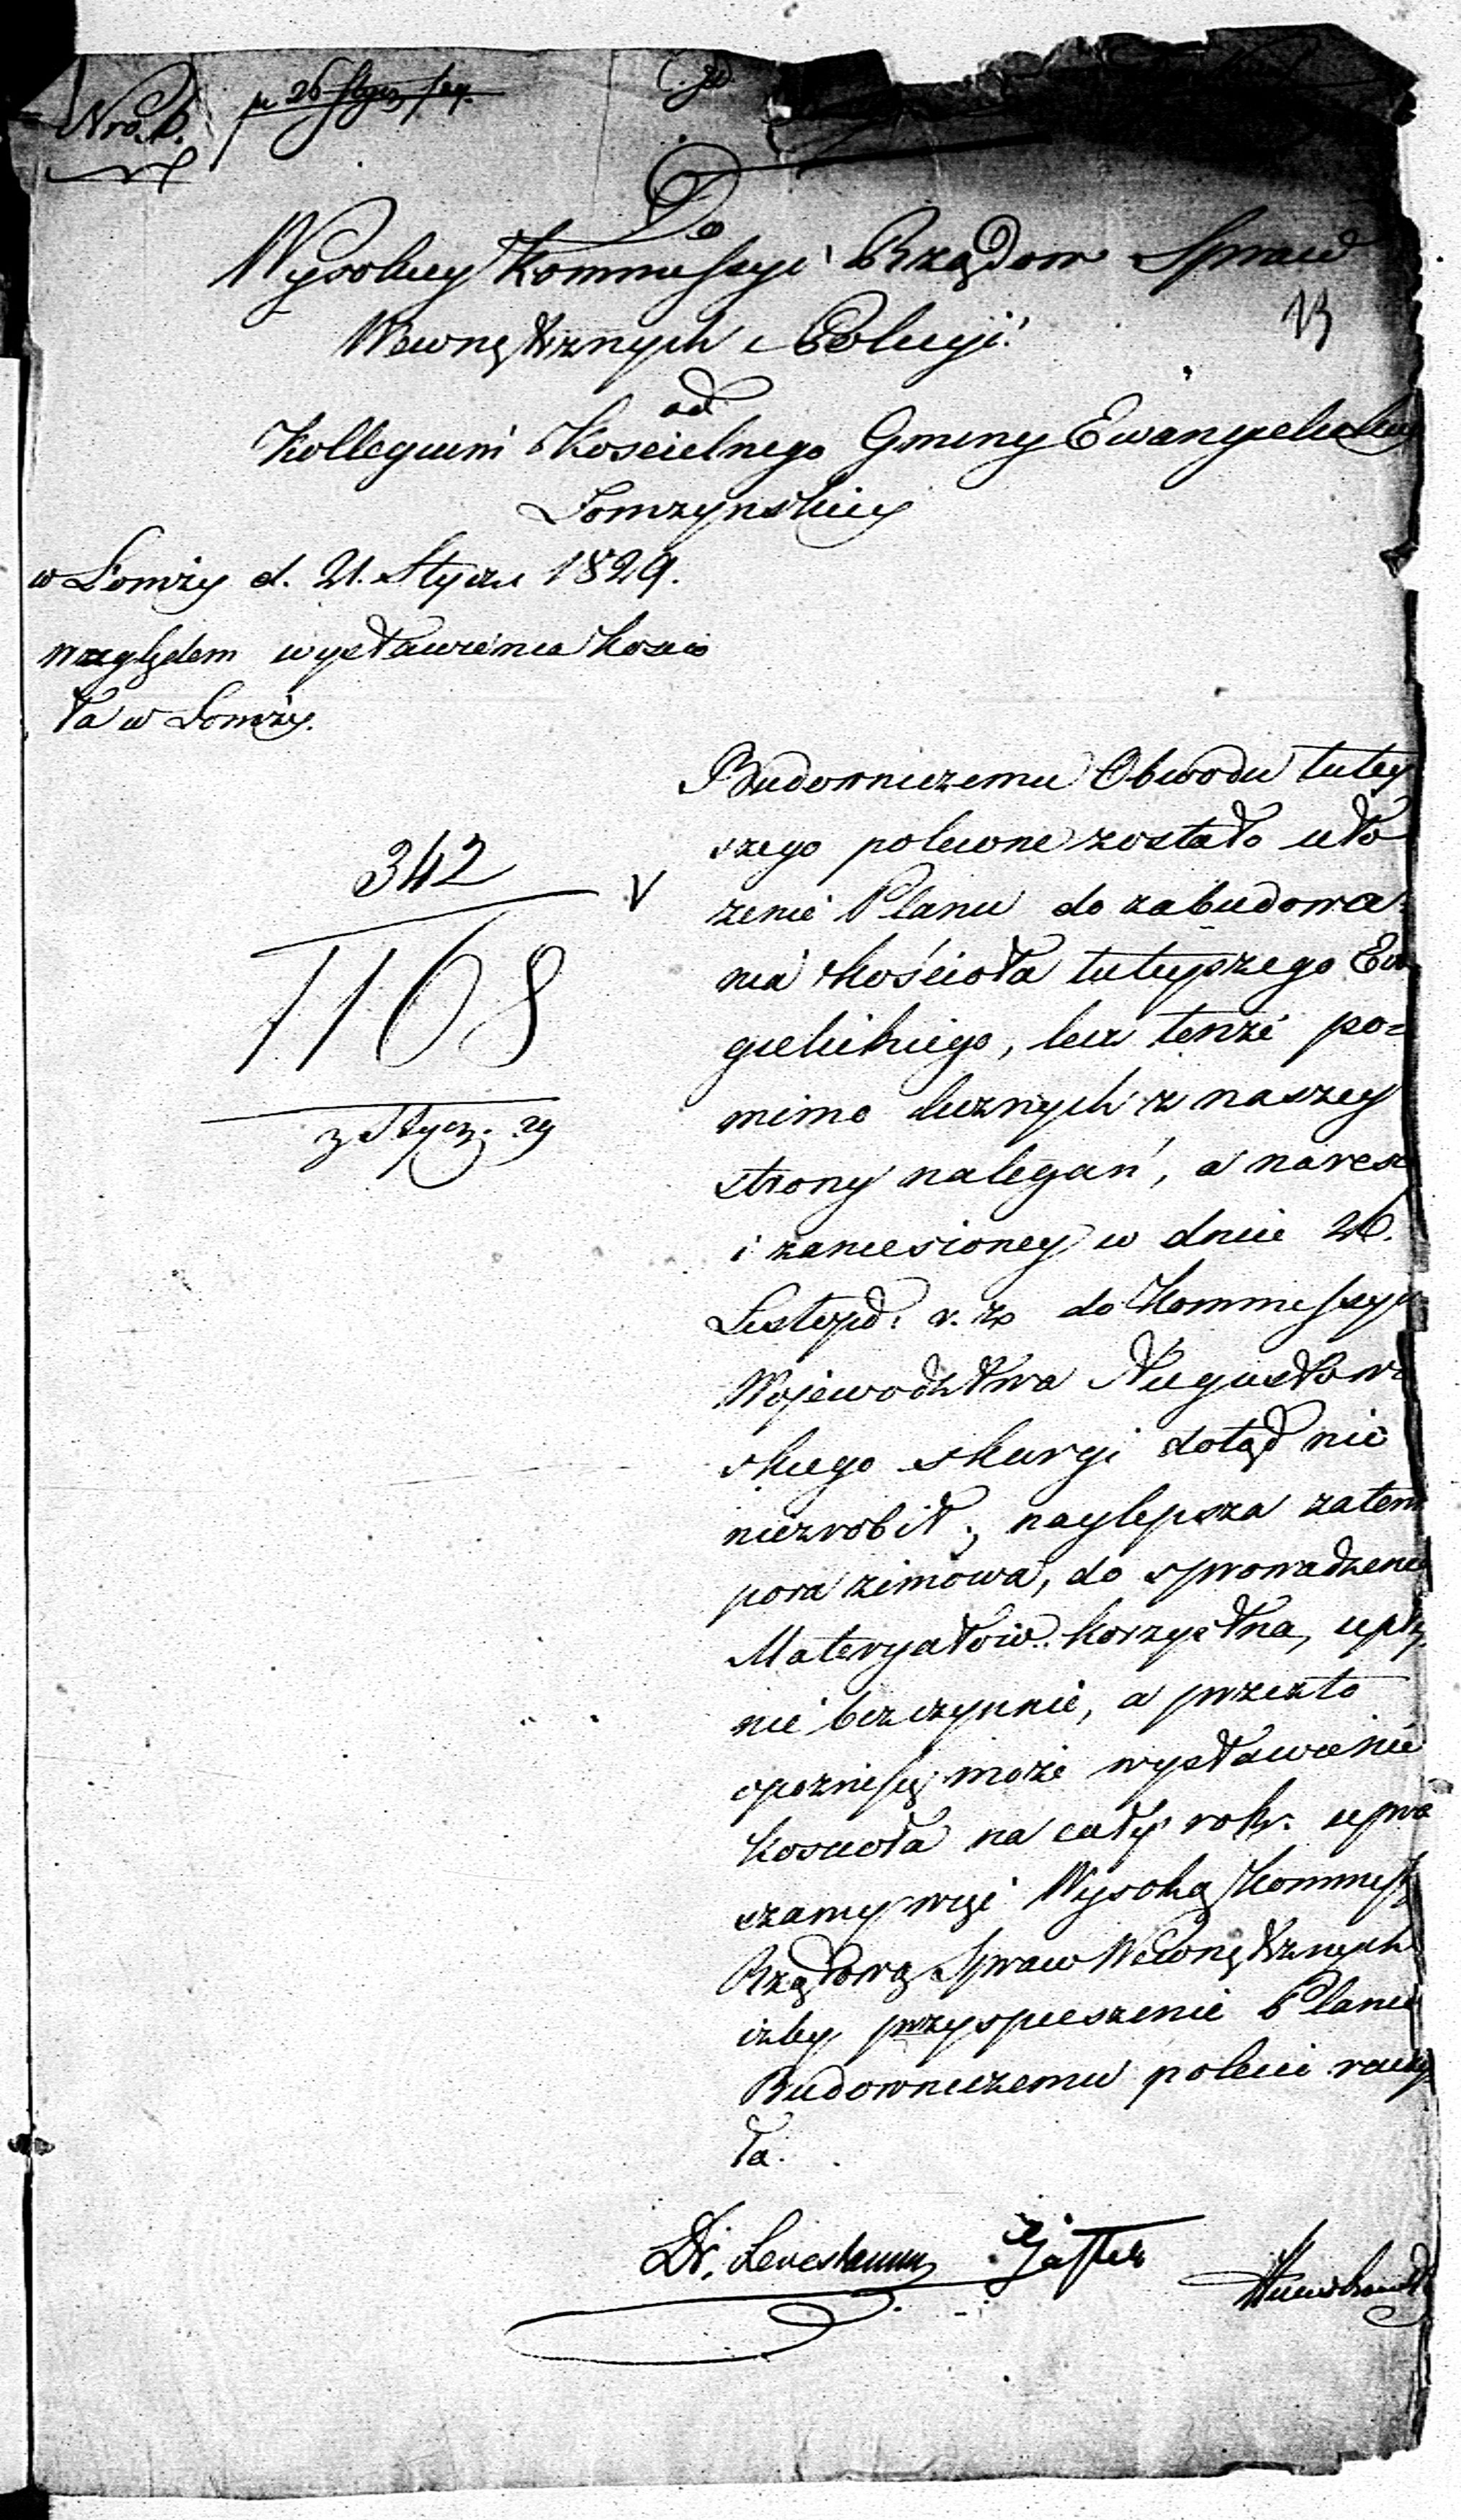 Nro. 6.
pr 26 Stycz. 829.
Do
Wysokiey Kommissyi Rządow Spraw
Wewnętrznych i Policyi
13
od
Kollegium Koscielnego Gminy Ewangelickiey
Łomzynskiey
w Łomży d. 21. Stycz. 1829.
względem wystawienia koscio
ła w Łomży.
Budowniczemu Obwodu tutey
szego polecone zostało uło
żenie Planu do zabudowa=
nia kościoła tuteyszego Ewa
gielickiego, lecz tenże po=
mimo licznych z naszey
strony nalegań, a nareszc
i zaniesioney w dniu 26.
Listopd. r. z. do Kommissyi
Wojewodztwa Augustow
skiego skargi dotąd nic
niezrobił; naylepsza zatem
pora zimowa, do sprowadzenia
Materyałów korzystna, upły
nie bezczynnie, a przezto
opoznic się może wystawienie
kościoła na cały rok. upra
szamy więc Wysoką Kommiss
Rządową Spraw Wewnętrznych
izby przyspieszenie Planu
Budowniczemu polecić raczy
ła.
342
1168
z Stycz. 29
Dr.